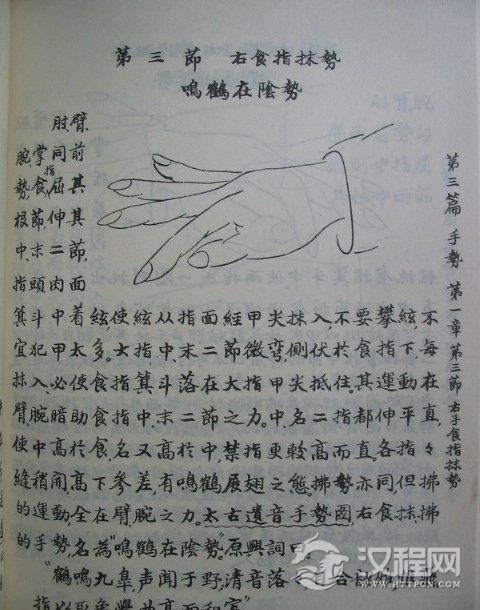 第三節 右食指抹勢
鳴鶴在陰勢
肘臂,
腕,掌同前
勢,食指屈其
根節,伸其
中,末二節,
指頭肉面
箕斗中着絃使絃从指面經甲尖抹入,不要攀絃,不
宜犯甲太多.大指中,末二節微彎,側伏於食指下,每
抹入,必使食指箕斗落在大指甲尖抵住.其運動在
臂腕暗助食指中,末二節之力.中,名二指都伸平直,
使中高於食,名又高於中,禁指更較高而直.各指々
縫稍開,高下參差有鳴鶴展翅之態.拂勢亦同,但拂
的運動全在臂腕之力.太古遺音手勢圖,右食抹,拂
的手勢,名為"鳴鶴在陰勢".原興詞曰
"鶴鳴九臯,声聞于野,清音落
指以取象
第三篇 手勢 第一章 第三節右手食指抹勢
汉程网